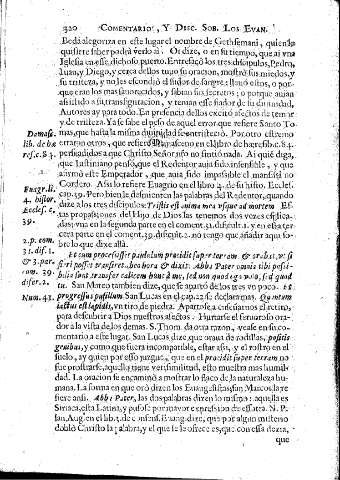 320 COMENTARIO, Y DISC. SOB. LOS EVAN.
Beda alegoriza en este lugar el nombre de Gethsemani, quien lo
quisiere saber podrá verlo à . Or dize, o en su tiempo, que ai vna
Iglesia en esse dichoso puerto. Entresacó los tres discipulos, Pedro,
Iuan, y Diego, y cerca dellos tuvo su oracion, mostró sus miedos, y
su tristeza, y no les escondió el sudor de sangre, llevó estos, o por-
que eran los mas favorecidos, y sabian sus secretos; o porque avian
assistido a su transfiguracion, y tenian esse fiador de su divinidad,
Autores ay para todo. En presencia dellos excitó afectos de temor
y de tristeza. Ya se sabe el peso de aquel error que refiere Santo To-
mas, que hasta la misma divinidad se entristeció. Por otro estremo
erraron otros, que refiere Damasceno en el libro de haeresib. c. 84.
persuadidos a que Christo Señor no sintió nada. Ai quié diga,
que Iustiniano pensó, que el Redentor aun fue insensible, y que
Cordero. Assi lo refiere Euagrio en el libro 4. de su histor. Ecclesi.
cap. 39. Pero bien le desmienten las palabras del Redentor, quando
dize a los tres discipulos: Tristis est anima mea usque ad mortem. Es-
tas proposiciones del Hijo de Dios las tenemos dos vezes esplica-
das; vna en la segunda parte en el coment. 31. discur. 1. y en esta ter-
cera parte en el coment. 39. discur. 2. no tengo que añadir aqui so-
bre lo que dixe allá.
Et cum processisset paululum procidit super terram & orabat, ut si
fieri posset transiret hec hora & dixit: Abba Pater omnia tibi possi-
bilia sunt transfer calicem hunc à me, sed non quod ego volo, sed quod
tu. San Mateo tambien dize, que se apartó de los tres vn poco. Et
progressus pusillum. San Lucas en el cap. 22. se declara mas. Quantum
iactus est lapidis, vn tiro de piedra. Apartose a enseñarnos el retiro,
para descubrir a Dios nuestros afectos. Hurtarse el fervoroso ora-
dor a la vista de los demas. S. Thom. da otra razon, vease en su co-
mentario a este lugar. San Lucas dize, que orava de rodillas, positis
genibus, y como que fuera incompatible, estar assi, y el rostro en el
suelo, ay quien por esso juzgue, que en el procidit super terram no
fue postrarse, aquello tiene verisimilitud, esto muestra mas humil-
dad. La oracion se encaminó a mostrar lo flaco de la naturaleza hu-
mana. La forma en que oró dizen los Evangelistas San Marcos la re-
fiere assi. Abba Pater, las dos palabras dizen lo mismo: aquella es
Siriaca, esta Latina, y pusose por mayor espression de essotra. N. P.
San Aug. en el lib. 3. de consens. Evang. dize, que por algun misterio
dobló Christo la palabra, y el que se le ofrece es, que con essa dezia,
que
Damasc.
lib. de hae
res. c. 84.
Euagr. li.
4. histor.
Eccles. c.
39.
2. p. com.
31. dis. 1.
& 3. par.
com. 39.
discr. 2.
Num. 43.